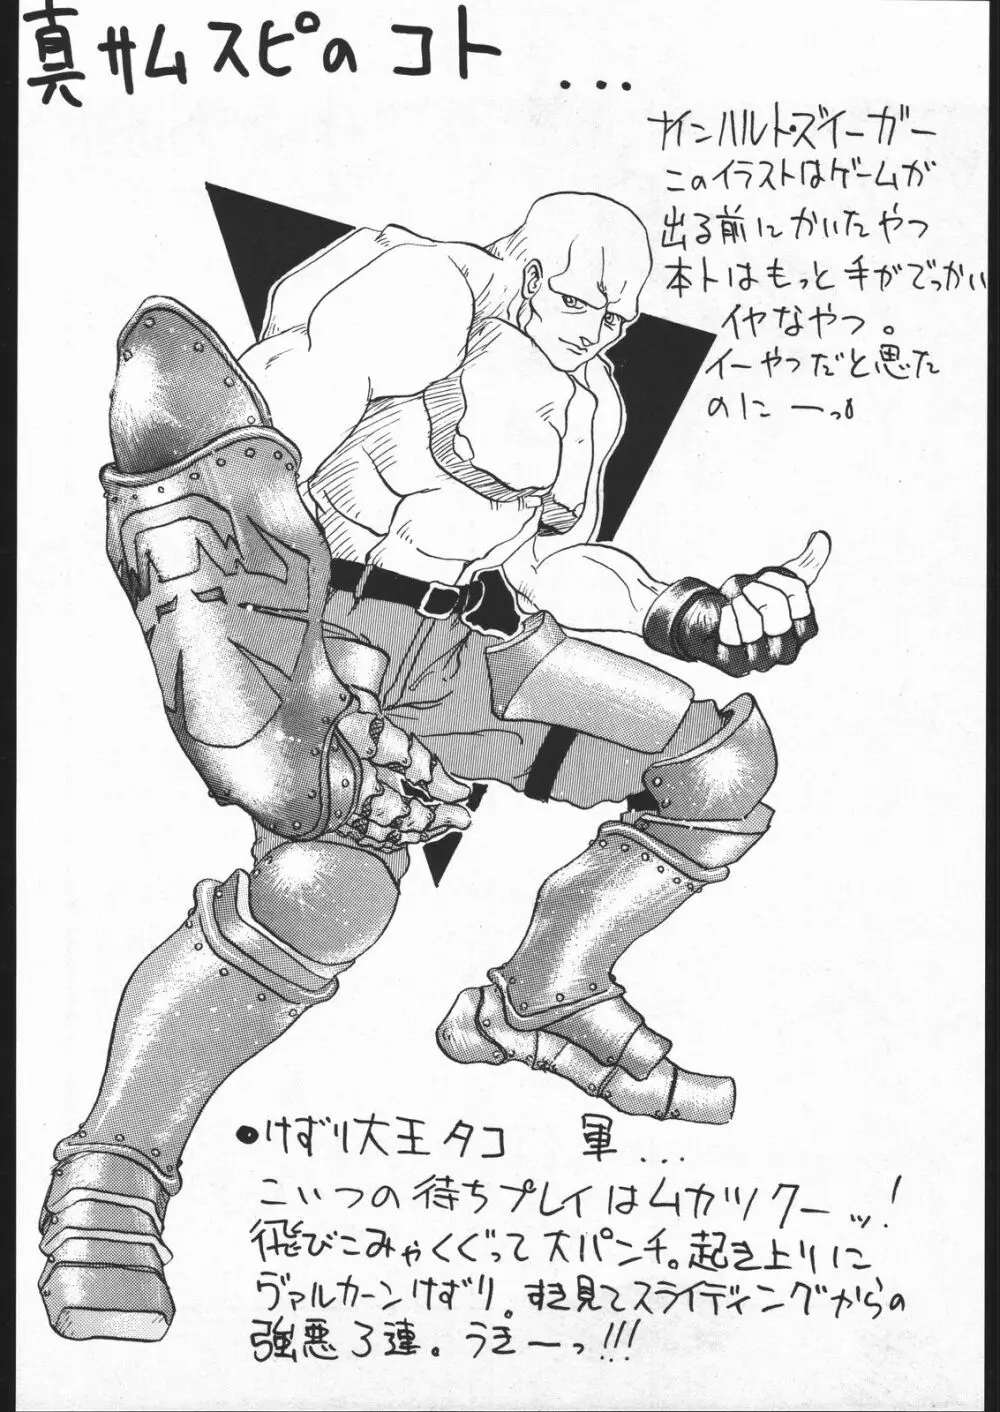 真サムスピのコト...
ナインハルト・ズィーガー
このイラストはゲームが
出る前にかいたやつ
本トはもっと手がでっかい
イヤなやつ。
イーやつだと思た
のにーっ。
・けずり大王タコ 軍...
こいつの待ちプレイはムカツクーッ!
飛びこみゃくぐって大パンチ。起き上りに
ヴァルカーンけずり。すき見てスライディングからの
強悪3連。うきーっ!!!